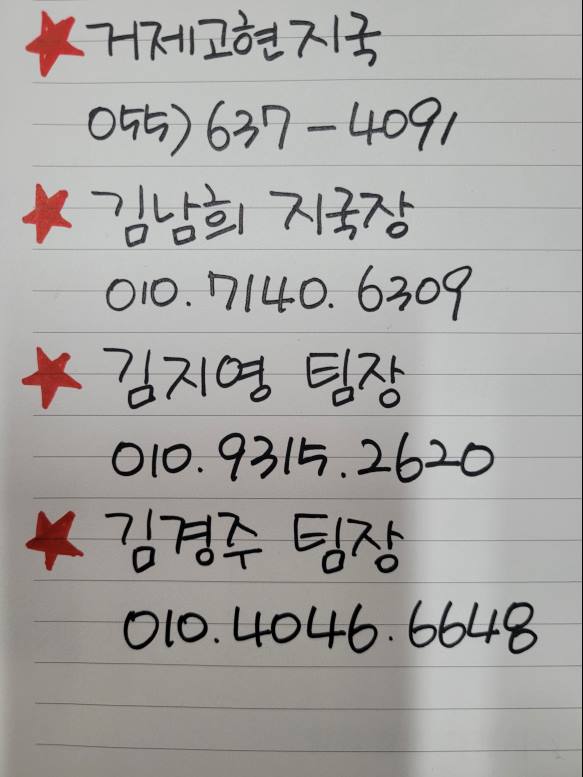 거제고현지국
055) 637-4091
김남희 지국장
010. 7140. 6309
김지영 팀장
010. 9315. 2620
김경주 팀장
010. 4046. 6648